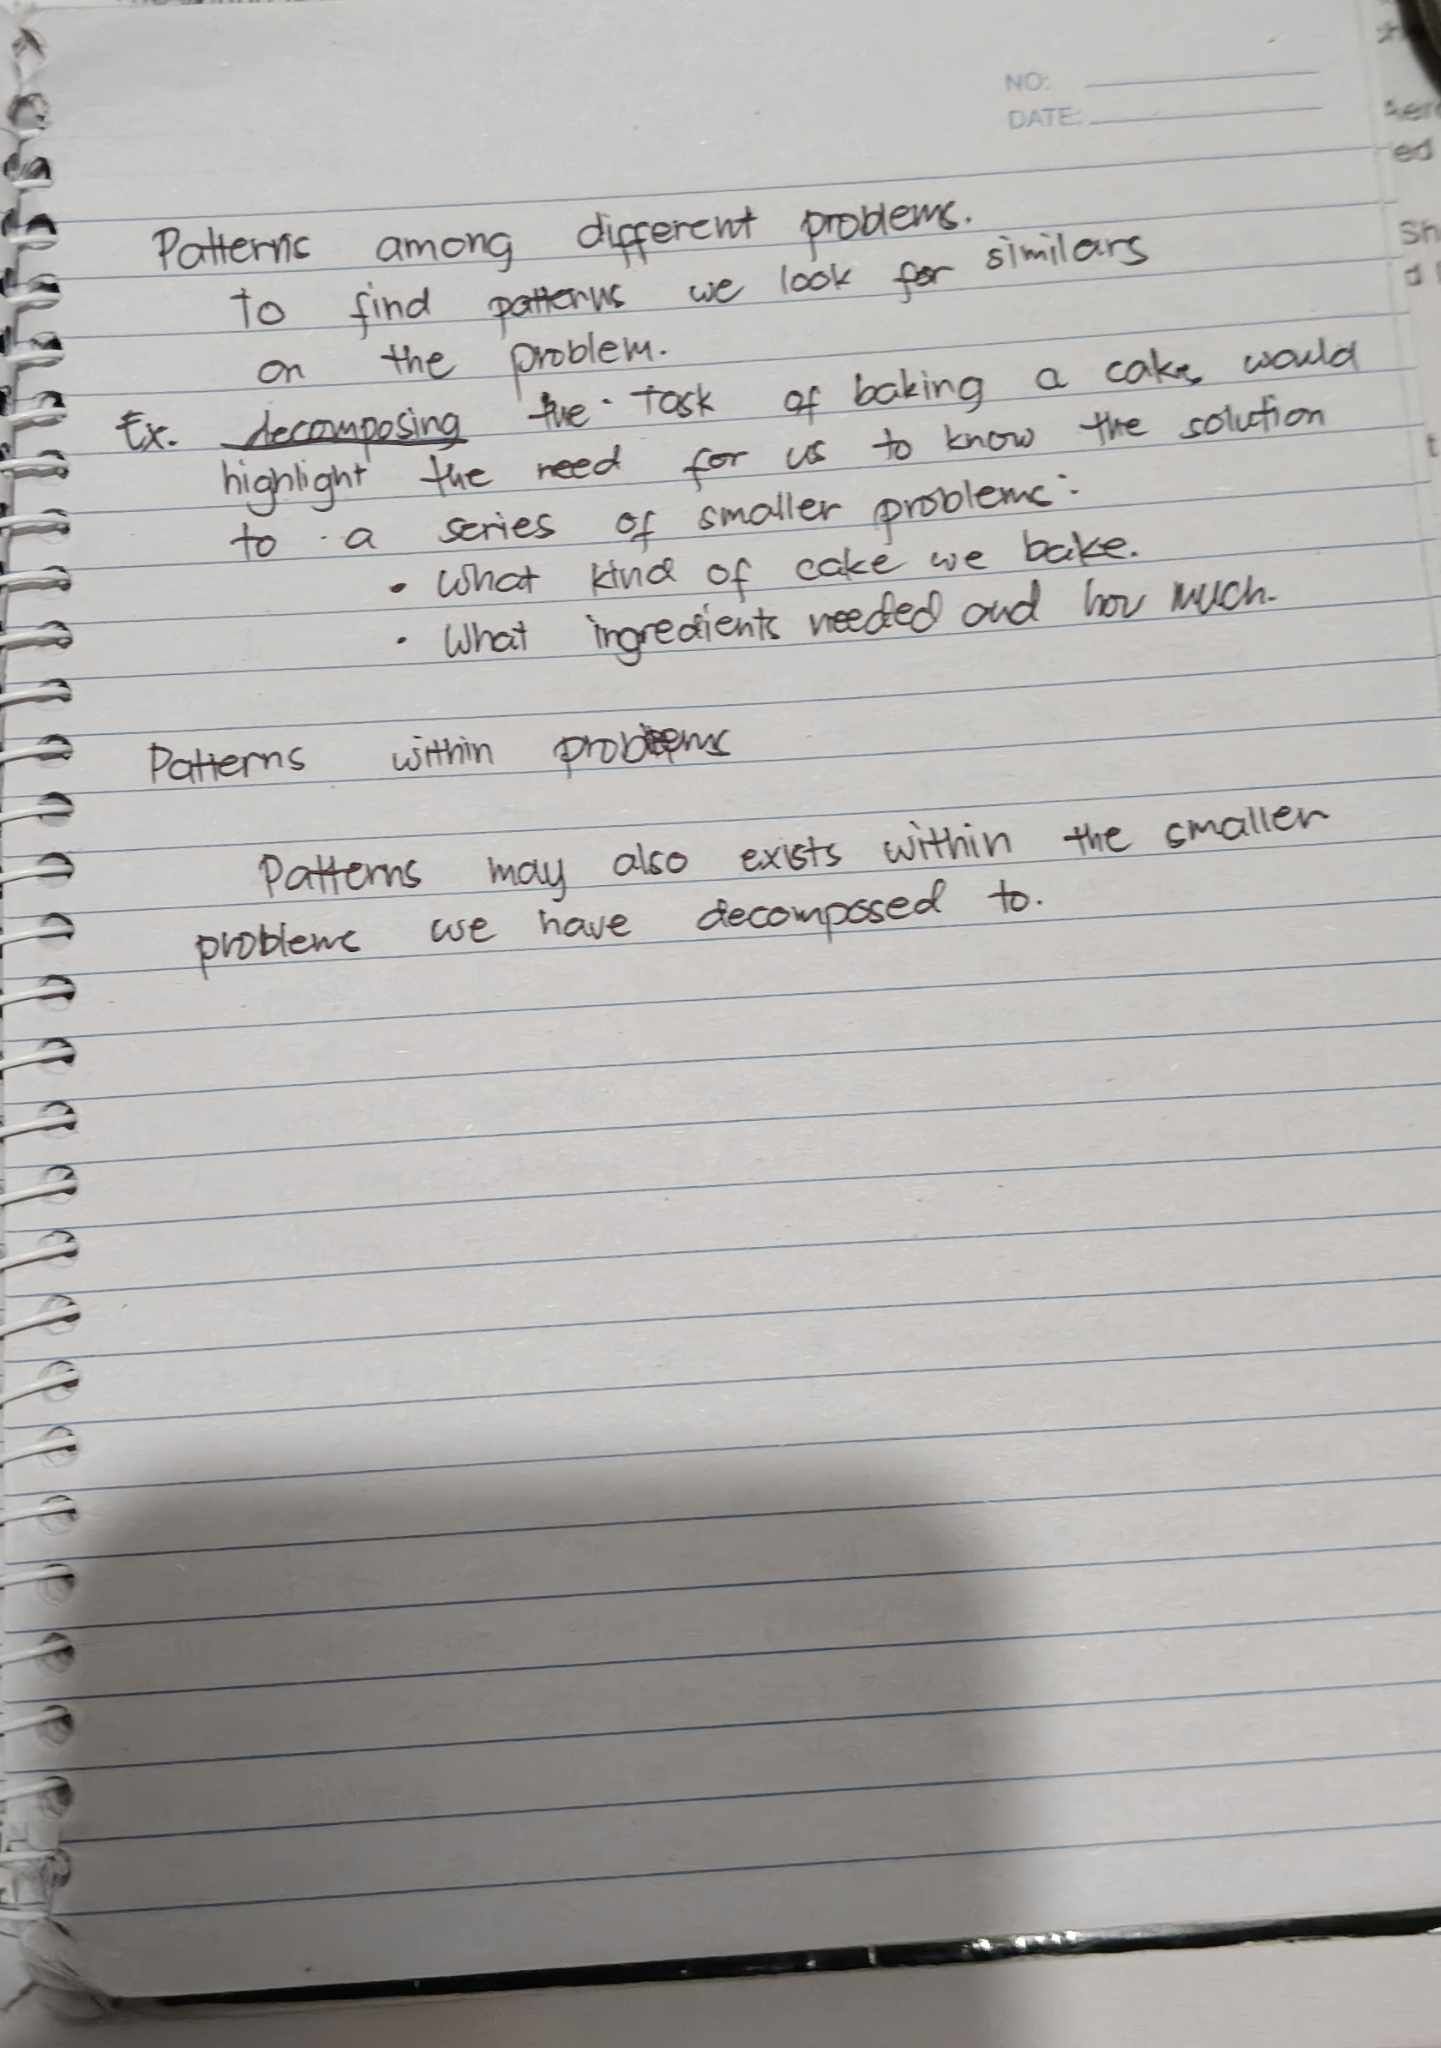 NO:
DATE:
Patterns among different problems.
To find patterns we look for similars
on the problem.
Ex. decomposing the task of baking a cake would
highlight the need for us to know the solution
to a series of smaller problems:
• What kind of cake we bake.
• What ingredients needed and how much.
Patterns within problems
Patterns may also exists within the smaller
problems we have decomposed to.